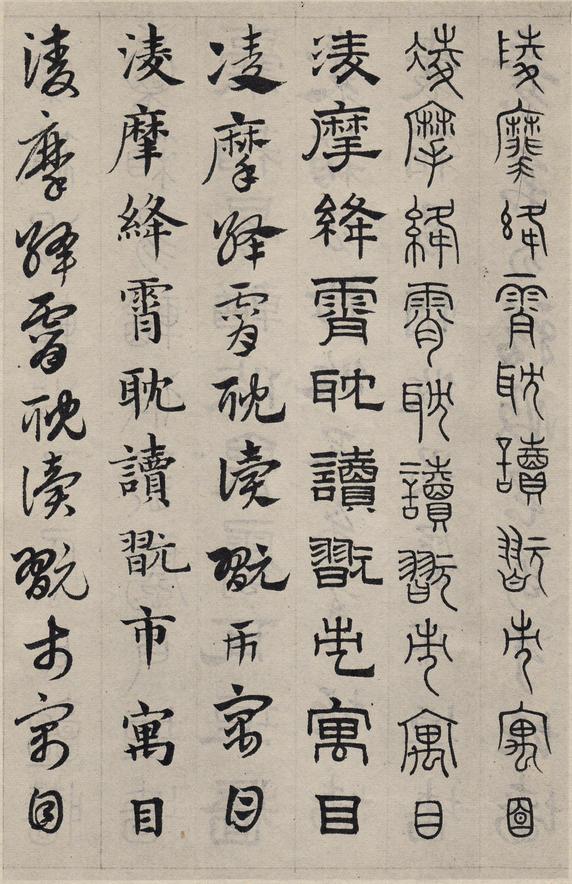 凌摩絳霄耽讀翫市寓目
凌摩絳霄耽讀翫市寓目
凌摩絳霄耽讀翫市寓目
凌摩絳霄耽讀翫市寓目
凌摩絳霄耽讀翫市寓目
凌摩絳霄耽讀翫市寓目